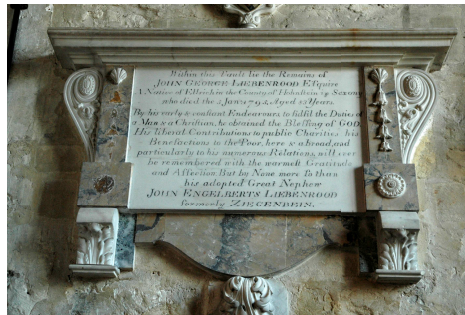 Within this Vault lie the Remains of
JOHN GEORGE LIEBENROOD Esquire
A Native of Ellrich in the County of Hohnstein in Saxony
who died the 3 Jany 1795, Aged 82 Years.
By his early & constant Endeavours to fulfil the Duties of
a Man & a Christian, he obtained the Blessing of GOD.
His liberal Contributions to public Charities his
Benefactions to the Poor, here & abroad, and
particularly to his numerous Relations, will ever
be remembered with the warmest Gratitude
and Affection But by None more So than
his adopted Great Nephew
JOHN ENGELBERTS LIEBENROOD
formerly ZIEGENBEIN.